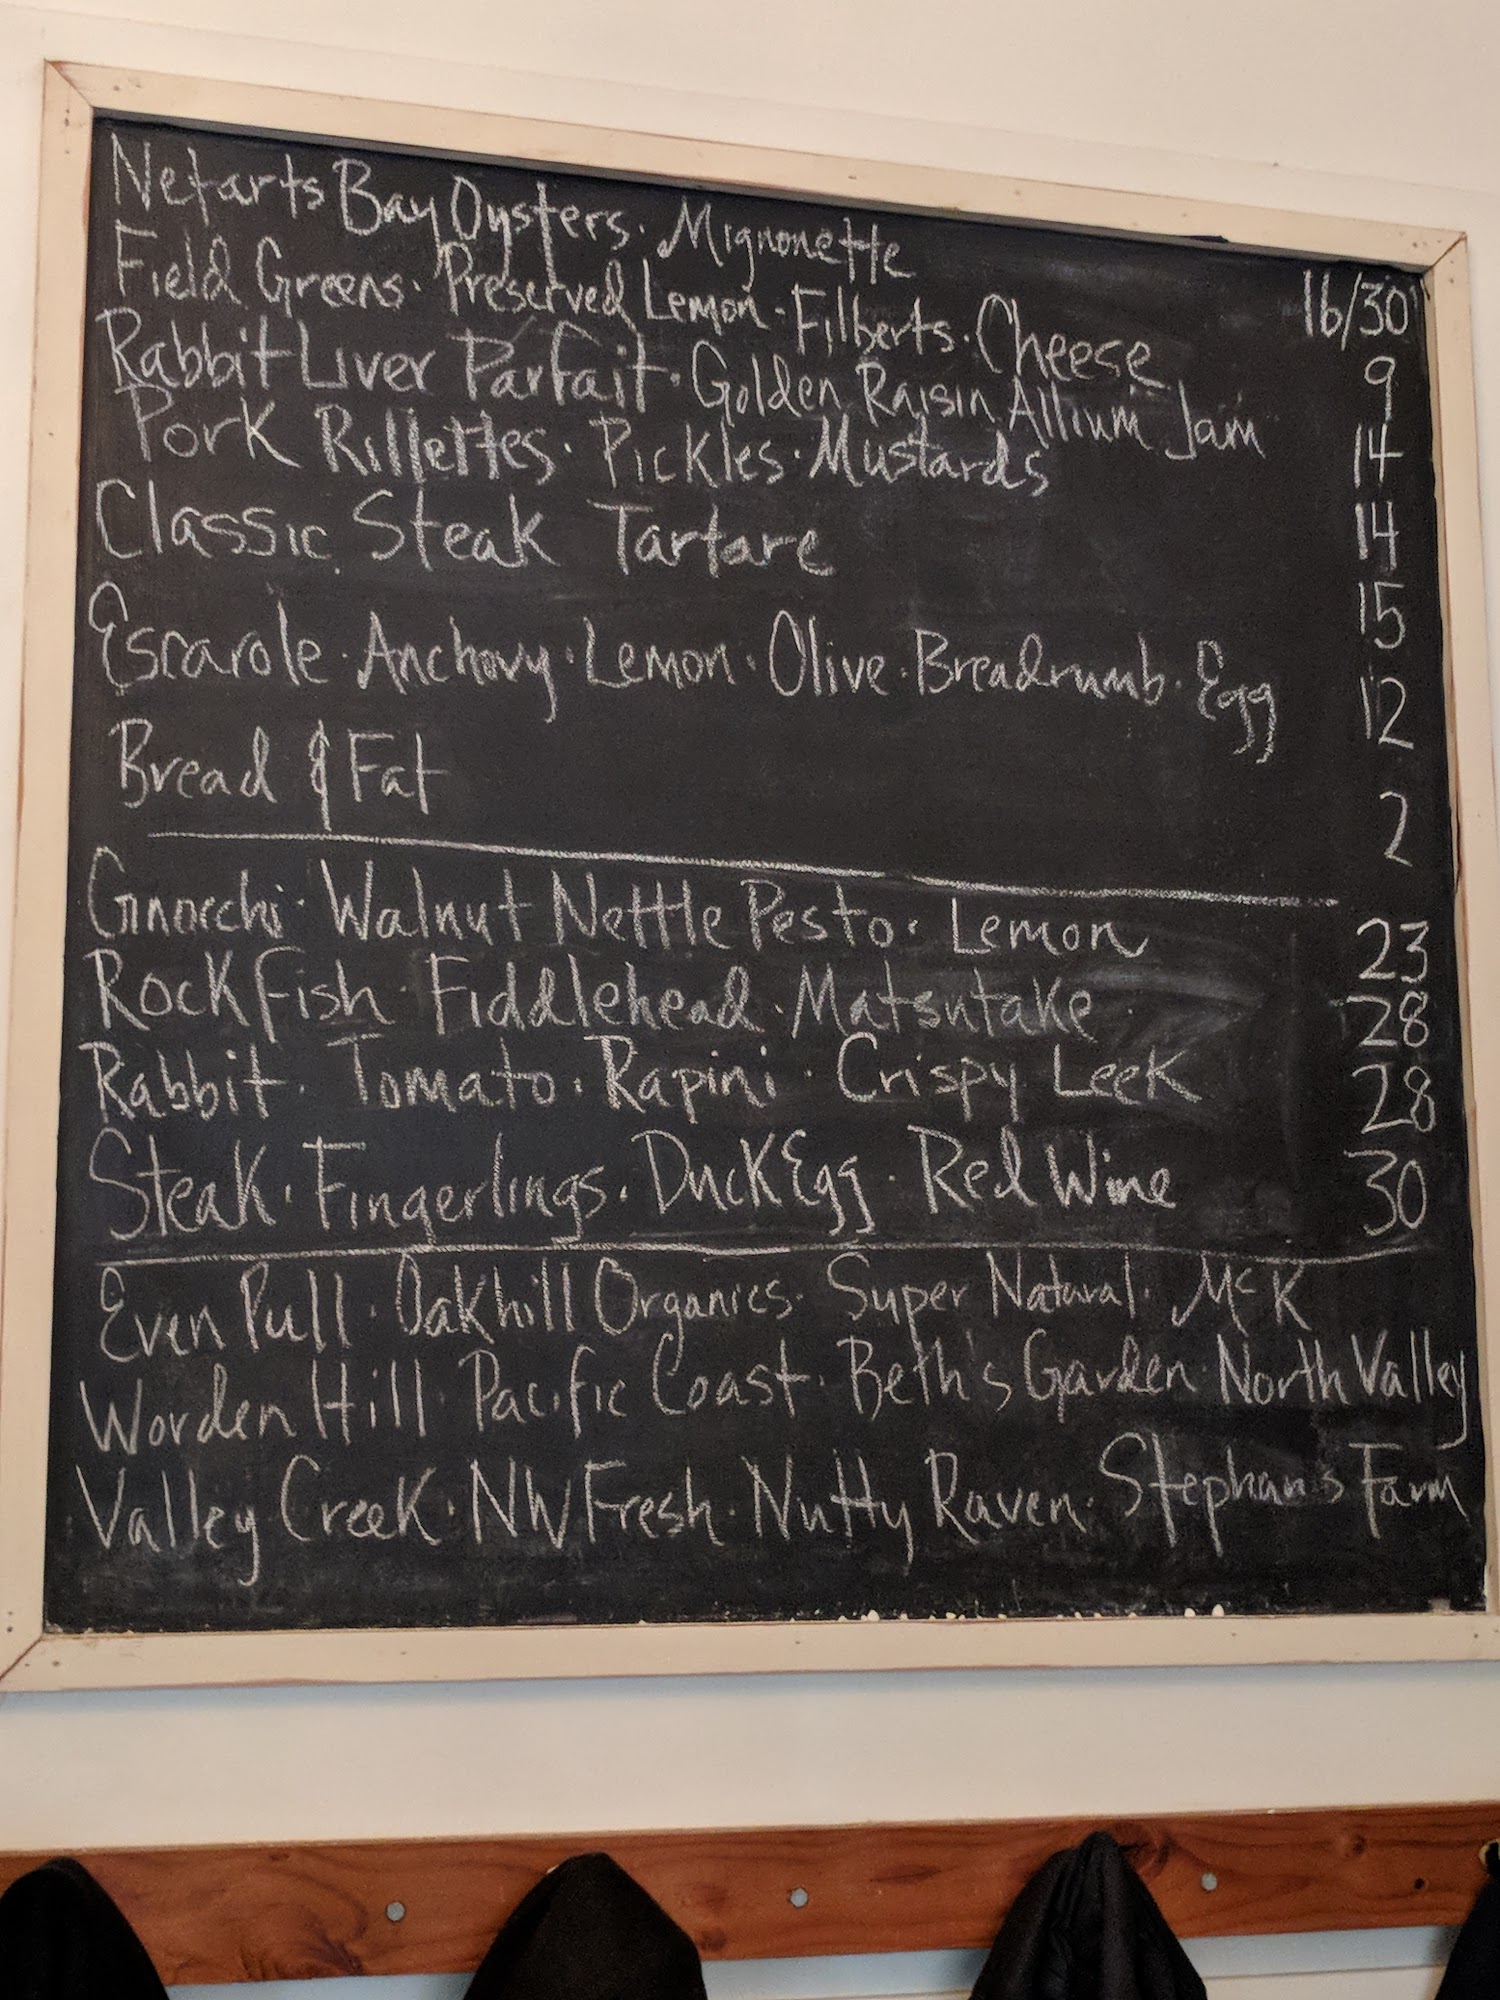 Netarts Bay Oysters · Mignonette 16/30
Field Greens · Preserved Lemon · Filberts · Cheese 9
Rabbit Liver Parfait · Golden Raisin Allium Jam 14
Pork Rillettes · Pickles · Mustards 14
Classic Steak Tartare 15
Escarole · Anchovy · Lemon · Olive · Breadcrumb · Egg 12
Bread & Fat 2
Gnocchi · Walnut Nettle Pesto · Lemon 23
Rockfish · Fiddlehead · Matsutake 28
Rabbit · Tomato · Rapini · Crispy Leek 28
Steak · Fingerlings · Duck Egg · Red Wine 30
Even Pull · Oakhill Organics · Super Natural · McK
Worden Hill · Pacific Coast · Beth's Garden · North Valley
Valley Creek · NW Fresh · Nutty Raven · Stephans Farm